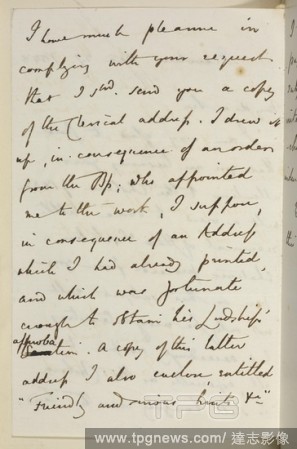 I have much pleasure in
complying with your request
that I shd. send you a copy
of the Clerical address. I drew it
up, in consequence of an order
from the Bp; who appointed
me to the work, I suppose,
in consequence of an Address
which I had already printed,
and which was fortunate
enough to obtain his Lordship's
approbation. A copy of this latter
address I also enclose, entitled
"Friendly and serious hints &c"
TPG
www.tpgnews.com/ 達志影像